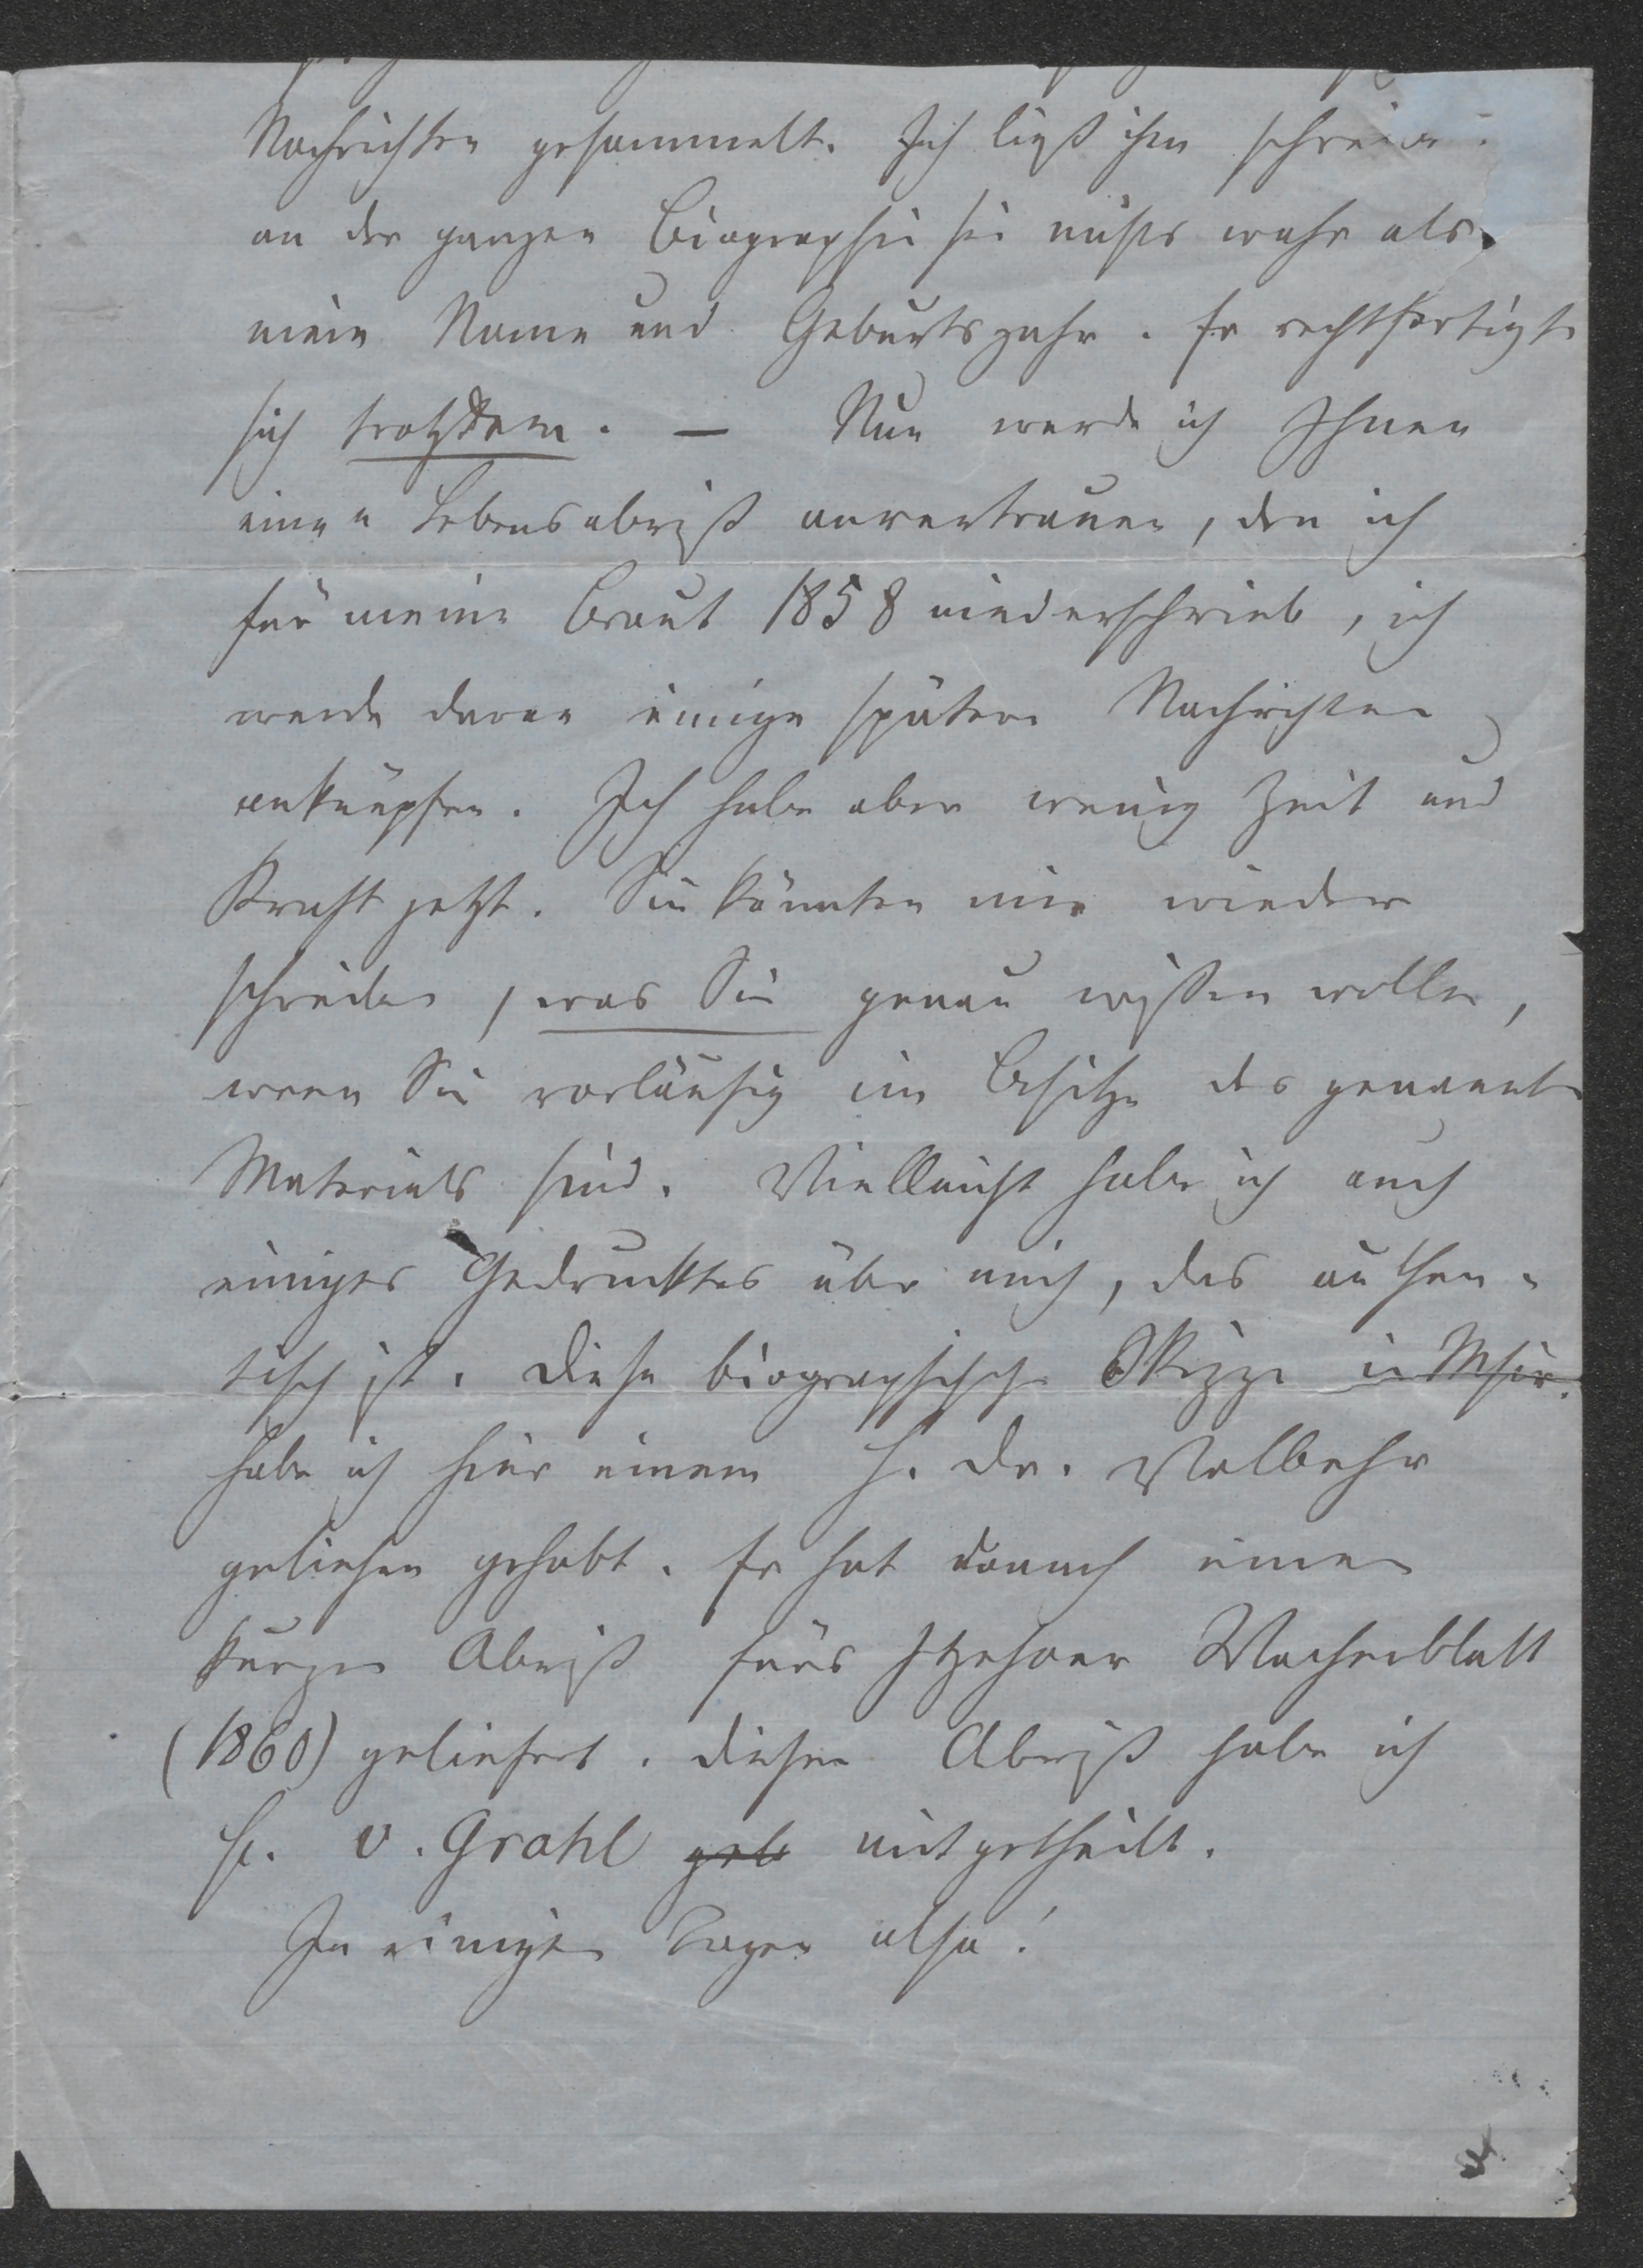 Nachrichten gesammelt. Ich ließ ihm schreiben
an der ganzen Biographie sei nichts wahr als
mein Name und Geburtsjahr. Er rechtfertigte
sich trotzdem. — Nun werde ich Ihnen
einen Lebensabriß anvertrauen, den ich
für meine Braut 1858 niederschrieb, ich
werde daran einige spätere Nachrichten
anknüpfen. Ich habe aber wenig Zeit und
Kraft jetzt. Sie könnten mir wieder
schreiben, was Sie genau wißen wollen,
wenn Sie vorläufig im Besitze des genannten
Materials sind. Vielleicht habe ich auch
einiges Gedrucktes über mich, das authen-
tisch ist. Diese biographische Skizze in
habe ich hier einem H. Dr. Volbehr
geliehen gehabt. Er hat danach einen
kurzen Abriß fürs Itzehoer Wochenblatt
(1860) geliefert. Diesen Abriß habe ich
H. v. Grahl geb mitgetheilt.
In einigen Tagen also!